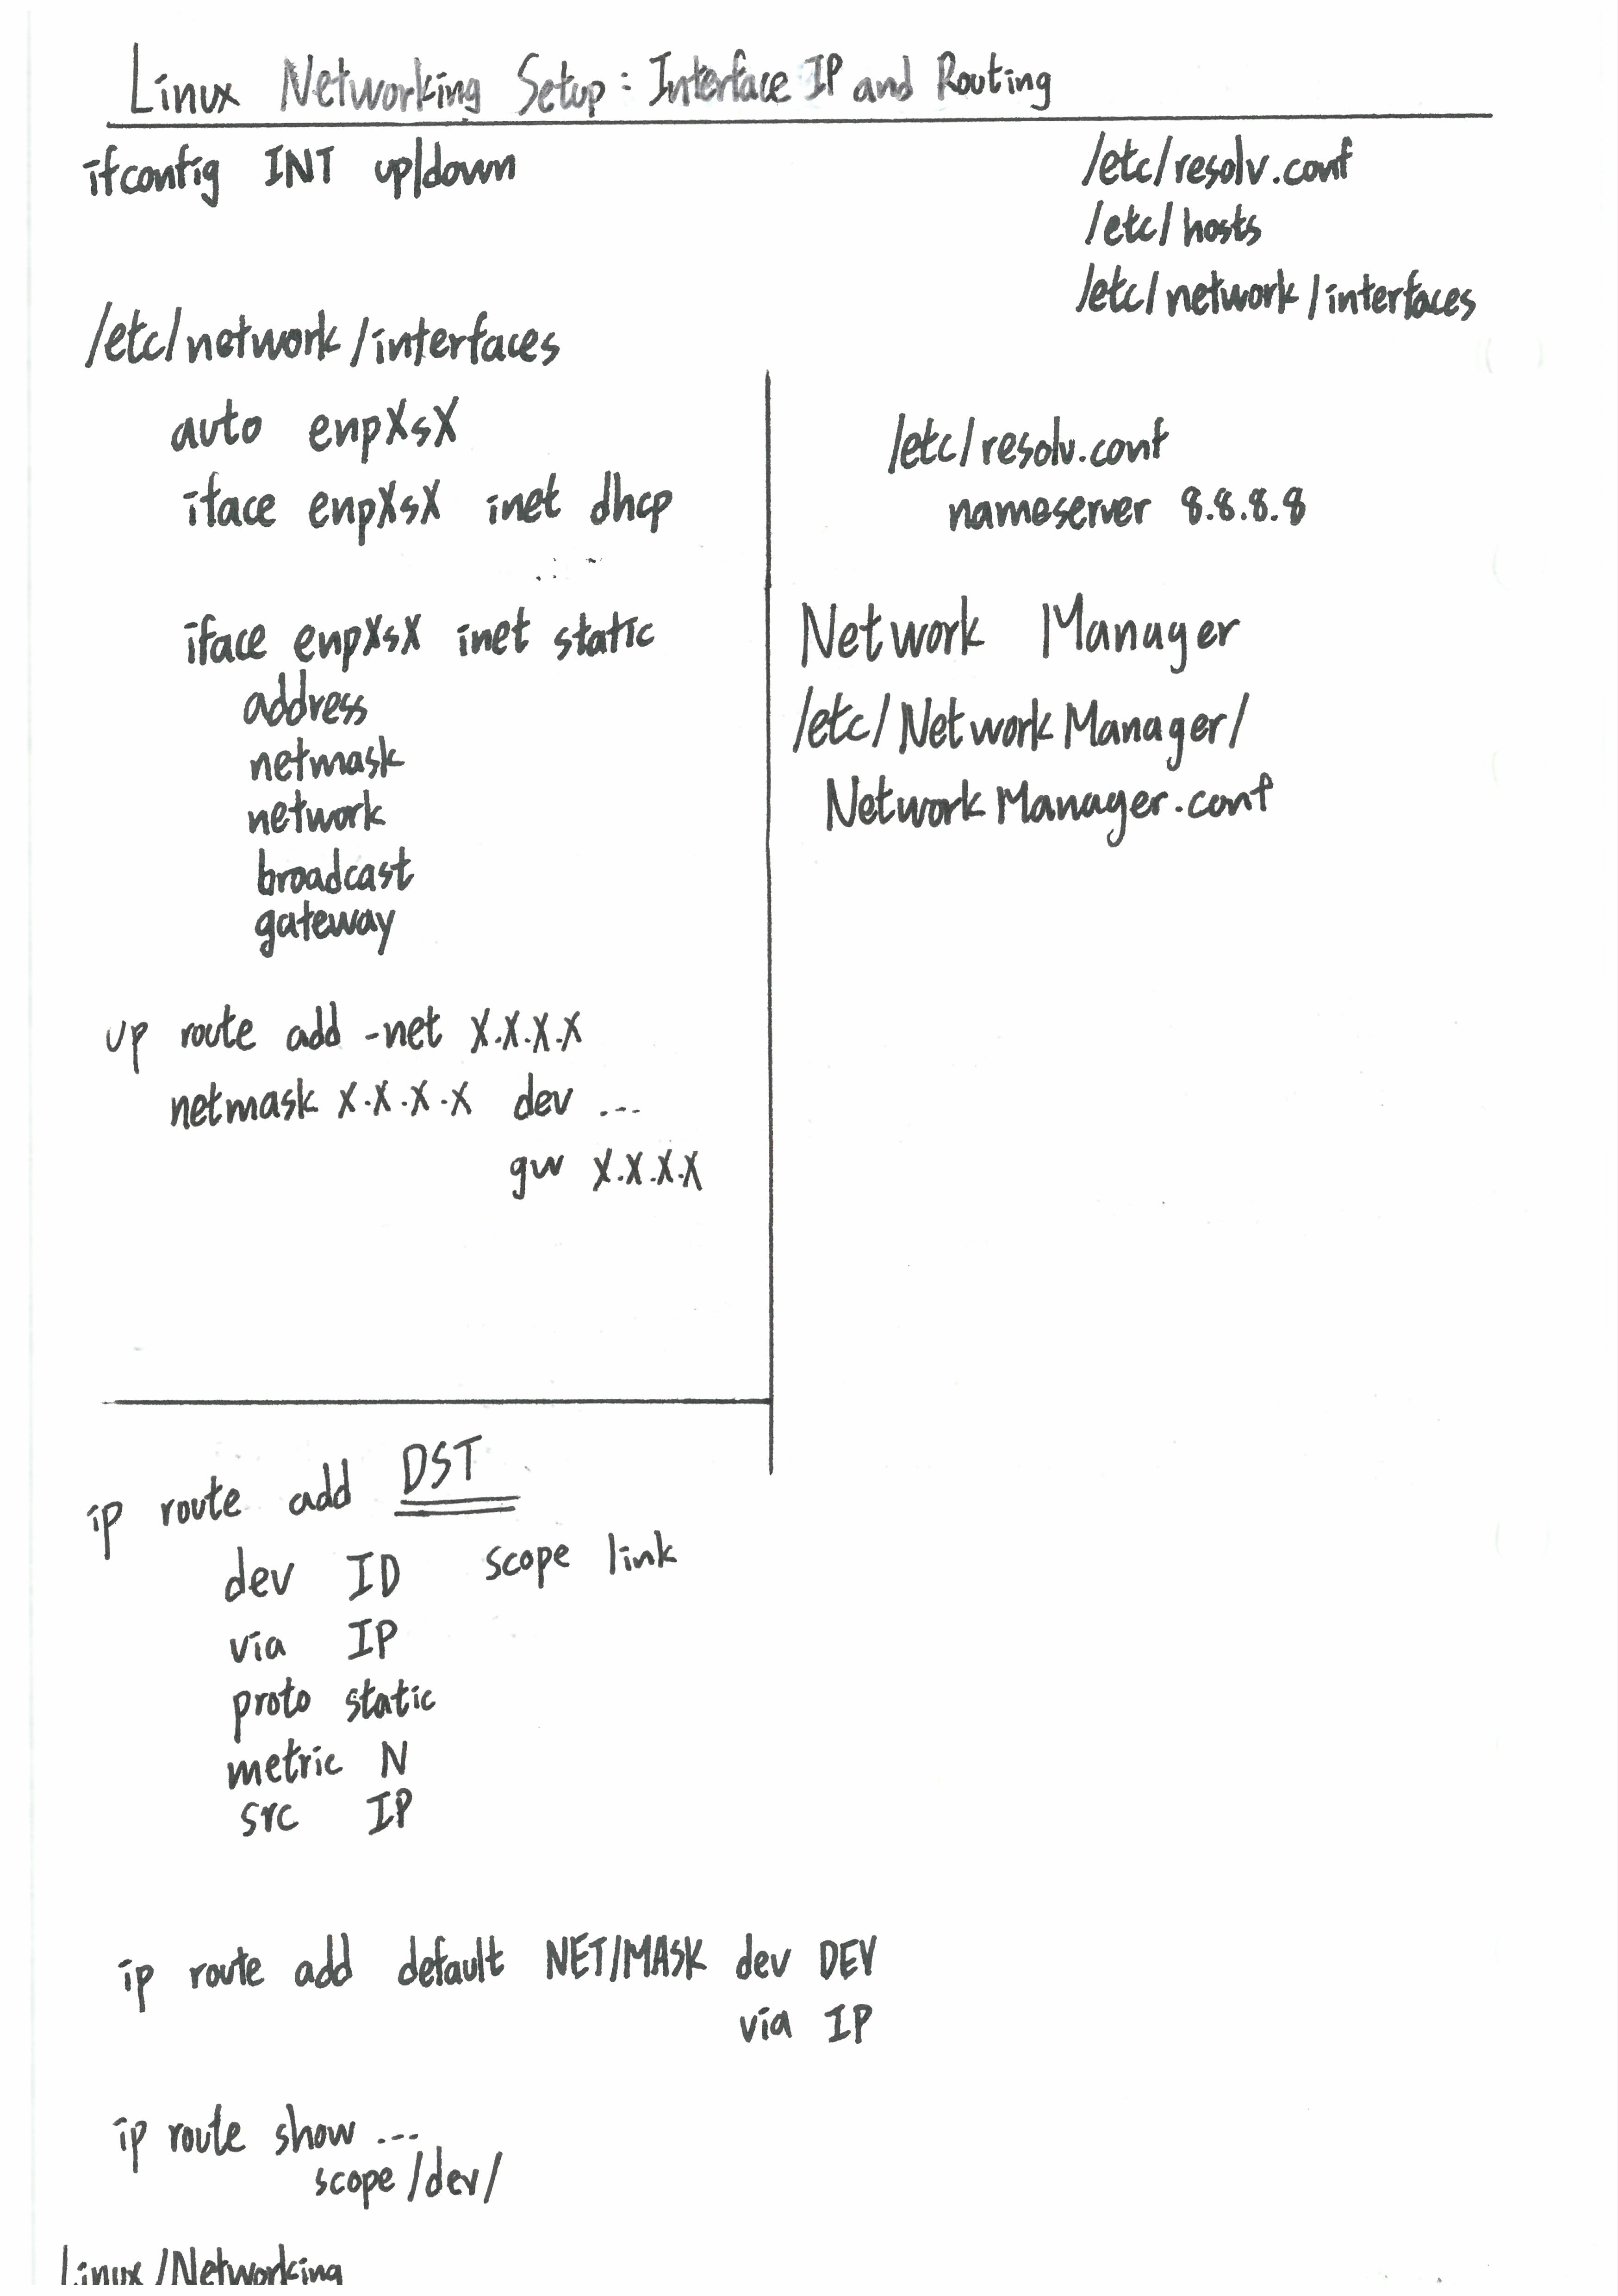 Linux Networking Setup: Interface IP and Routing
ifconfig INT up/down
/etc/resolv.conf
/etc/hosts
/etc/network/interfaces
/etc/network/interfaces
auto enpXsX
iface enpXsX inet dhcp
iface enpXsX inet static
address
netmask
network
broadcast
gateway
up route add -net X.X.X.X
netmask X.X.X.X dev ...
gw X.X.X.X
/etc/resolv.conf
nameserver 8.8.8.8
Network Manager
/etc/NetworkManager/
NetworkManager.conf
ip route add DST
dev ID scope link
via IP
proto static
metric N
src IP
ip route add default NET/MASK dev DEV
via IP
ip route show ...
scope /dev/
Linux/Networking